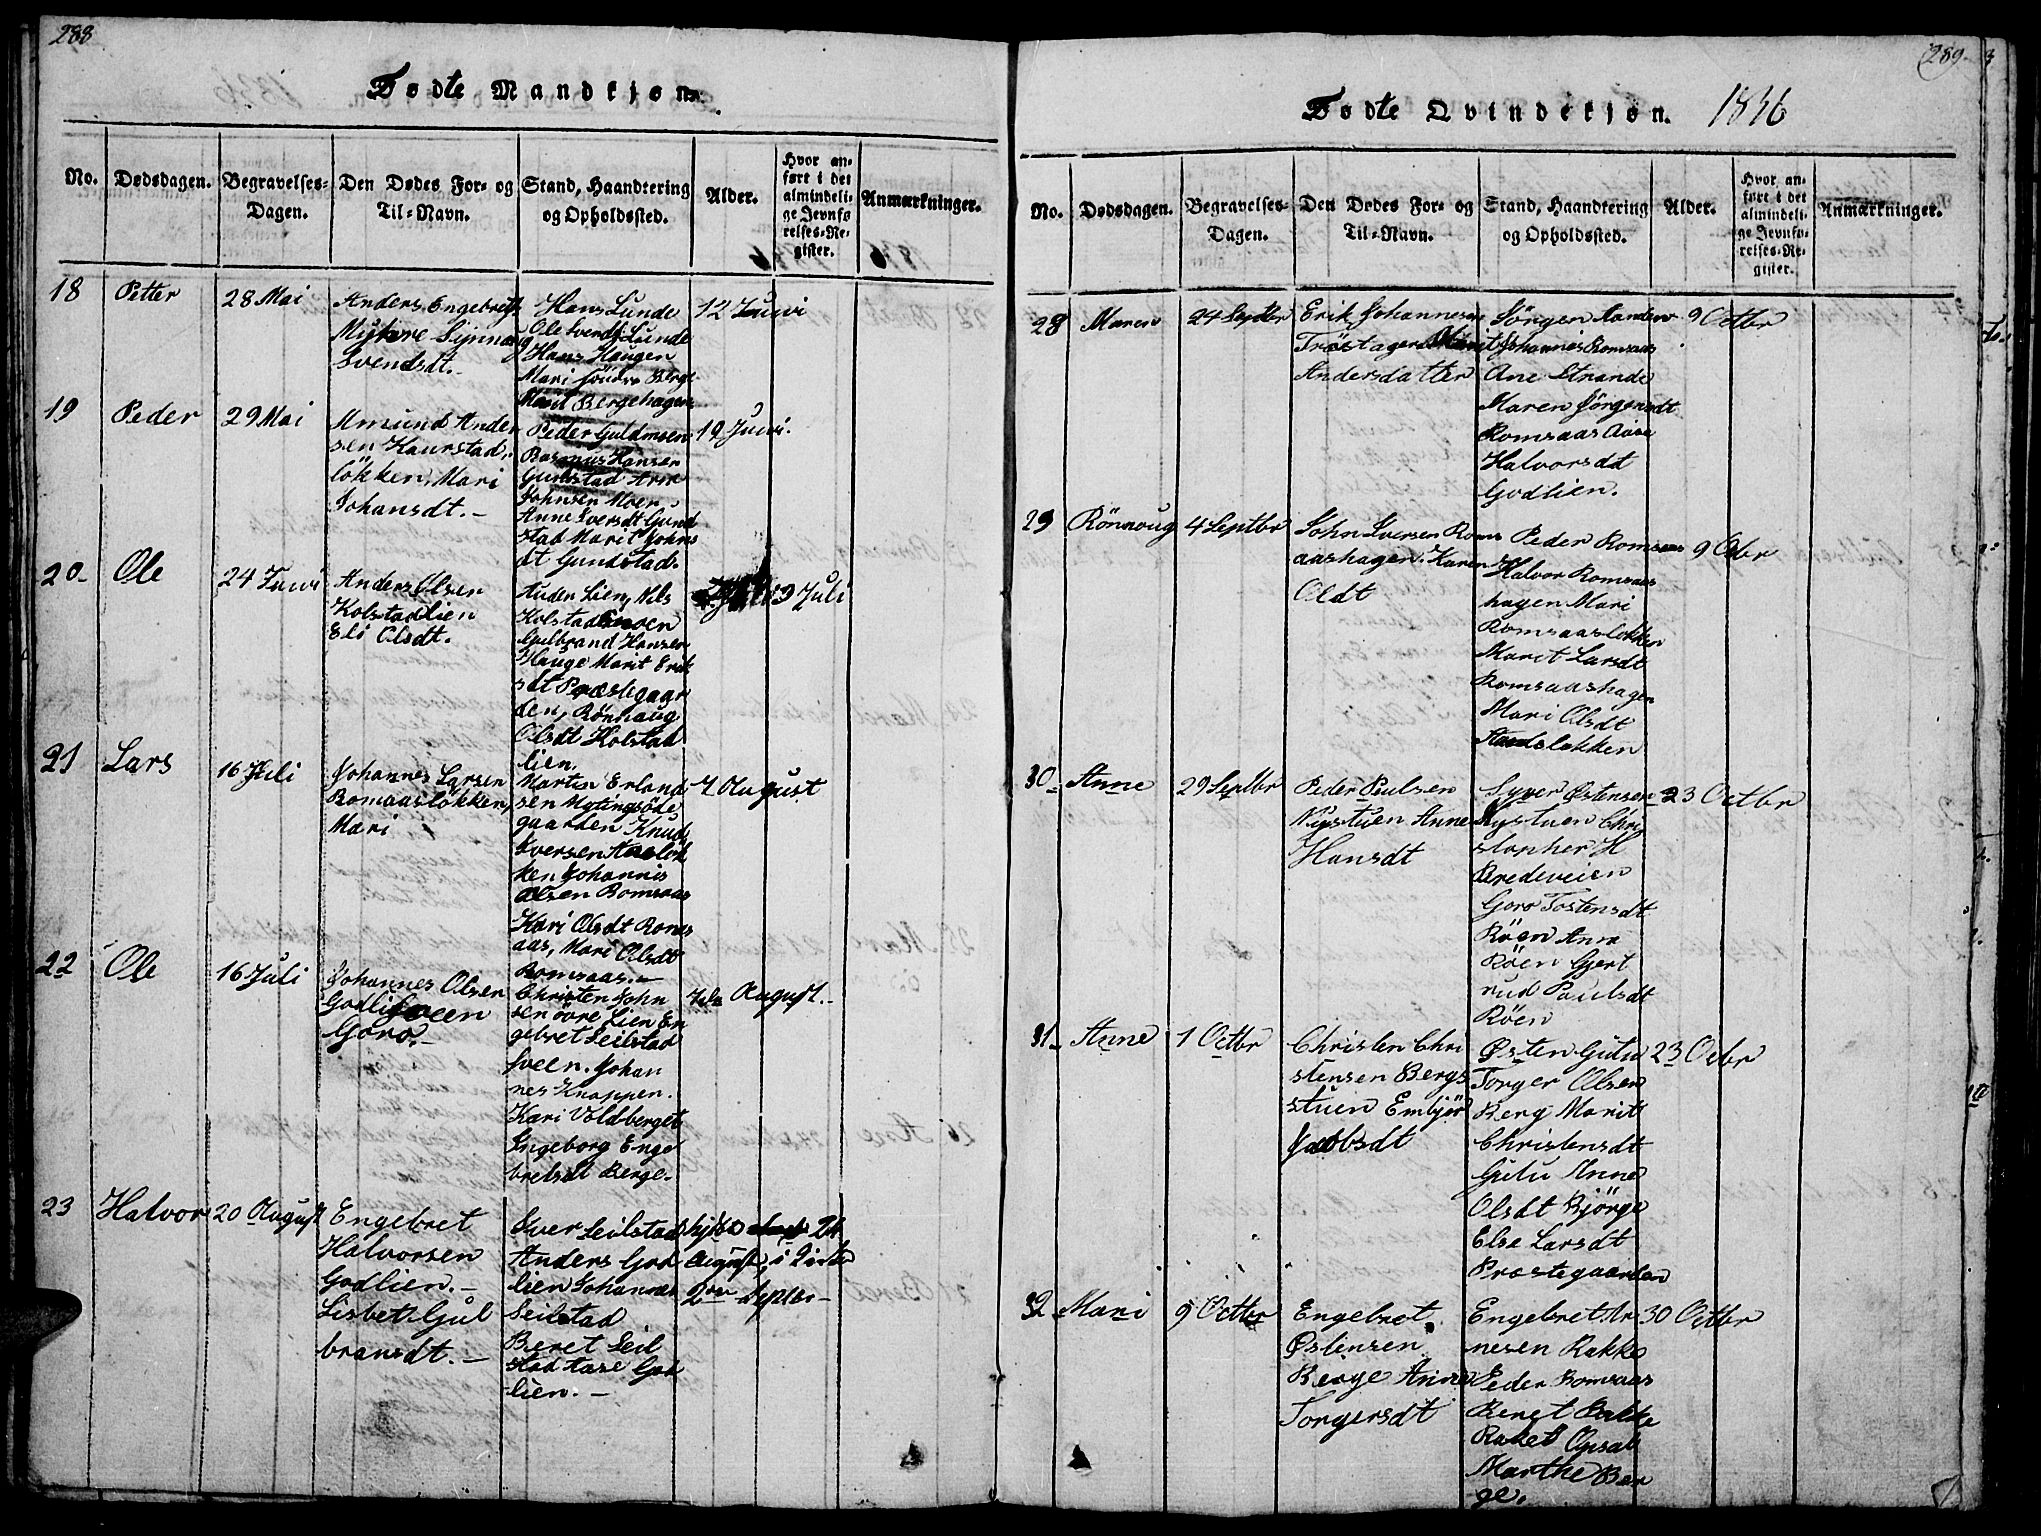 288
Fødte Mandkjøn.
No.
Dødsdagen.
Begravelses-
Dagen.
Den Dødes For- og
Til-Navn.
Stand, Haandtering
og Opholdssted.
Alder.
Hvor an-
ført i det
almindeli-
ge Jevnfø
relses-Re-
gister.
Anmærkninger.
18
Petter
28 Mai
Anders Engebrets
Svendsdt.
Hans Lunde
Ole Svends Lunde
Hans Haugen
Mari søndre Berge
Marit Bergehagen
12 Juni
19
Peder
29 Mai
Amund Ander
sen Kaurstad
løkken, Mari
Johansdt.-
Peder Guldmoen
Rasmus Hansen
Gundstad Arne
Johnsen Moen
Anne Iversdt Gund
stad Marit Johns
dt Gundstad
19 Juni.
20-
Ole
24 Juni
Anders Olsen
Kolstadlien
Eli Olsdt.
Lien, Nils
Kolstadmoen
Gulbrand Hansen
Hauge Marit Erik
sdt Præstegaar
den, Rönnaug
Olsdt Kolstad
lien.
3 Juli
21
Lars
16 Juli
Johannes Larsen
Romsaasløkken,
Mari
Martin Erland
sen Mytingsöde
gaarden Knud
Iversen Aaslök
ken Johannis
Olsen Romsaas
Kari Olsdt Roms
aas, Mari Olsdt
Romsaas.-
7 August
22
Ole
16 Juli
Johannes Olsen
Godlisveen
Goro.-
Christen John
sen övre Lien En
gebret Seilstad
sveen. Johan
nes Knappen.
Kari Voldberget
Ingeborg Enge
bretsdt Berge.
7de August.-
23
Halvor
20 August
Engebret
Halvorsen
Godlien.-
Lisbet Gul
bransdt.-
Iver Seilstad
Anders God
lien Johannes
Seilstad
Beret Seil
stad Aase God
lien.-
24
August, i
2den Septbr-
289
Fødte Qvindekjøn. 1836
No.
Dødsdagen.
Begravelses-
Dagen.
Den Dødes For- og
Til-Navn.
Stand, Haandtering
og Opholdssted.
Alder.
Hvor an-
ført i det
almindeli-
ge Jevnfø-
relses-Re-
gister.
Anmærkninger.
28
Maren
24 Septbr
Erik Johannesen
Andersdatter
Jörgen Sanden
Johannis Romsaas
Ane Strande
Maren Jörgensdt
Romsaas Aase
Halvorsdt
Godlien.
9 Octbr
29
Rönnoug
4 Septbr
John Iversen Roms
aashagen. Karen
Oldt
Peder Romsaas
Halvor Romsaas
hagen Mari
Romsaasløkken
Marit Larsdt
Romsaashagen
Mari Olsdt
9 Octbr
30-
Anne
29 Septbr
Peder Paulsen
Nystuen Anne
Hansdt
Syver Østensen
Nystuen Chri
stopher H
Bredeveien
Goro Tostensdt
Röen Anne
Röen Gjert
rud Paulsdt
Röen
23 Octbr
31-
Anne
1 Octbr
Christen Chri
stensen Bergs
stuen Embjör
Jacobsdt
Østen Gutu
Torger Olsen
Berg Marit
Christensdt
Gutu Anne
Olsdt Björge
Else Larsdt
Præstegaarden
23 Octbr
32-
Mari
9 Octbr
Engebret
Østensen
Berge Anne
Torgersdt
Engebret Ar
nesen Bakke
Peder Romsaas
Beret Bakke
Raket Opsal
Marthe Ber
ge.
30 Octbr